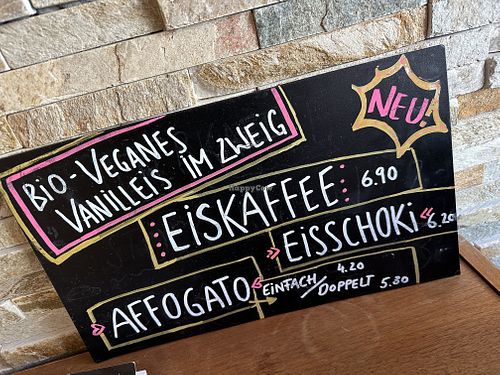 BIO-VEGANES
VANILLEIS IM ZWEIG
NEU!
EISKAFFEE 6.90
EISSCHOKI 6.20
AFFOGATO EINFACH/DOPPELT 4.20 5.80
HappyCow